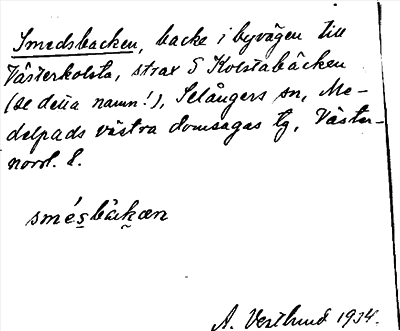 Smedsbacken, backe i byvägen till
Västerkolsta, strax S Kolstabäcken
(se detta namn!), Selångers sn, Me-
delpads västra domsagas tg, Väster-
norrl. l.
smésbäkæn
A. Vestlund 1934.